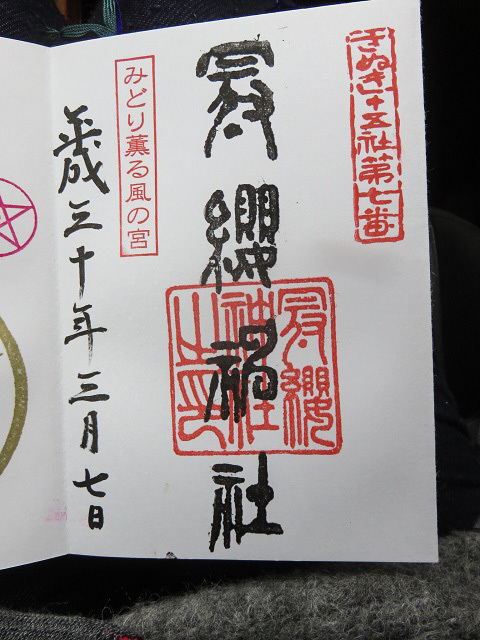 さぬき十五社第七番
冠纓神社
冠纓
神社
之印
みどり薫る風の宮
平成三十年三月七日